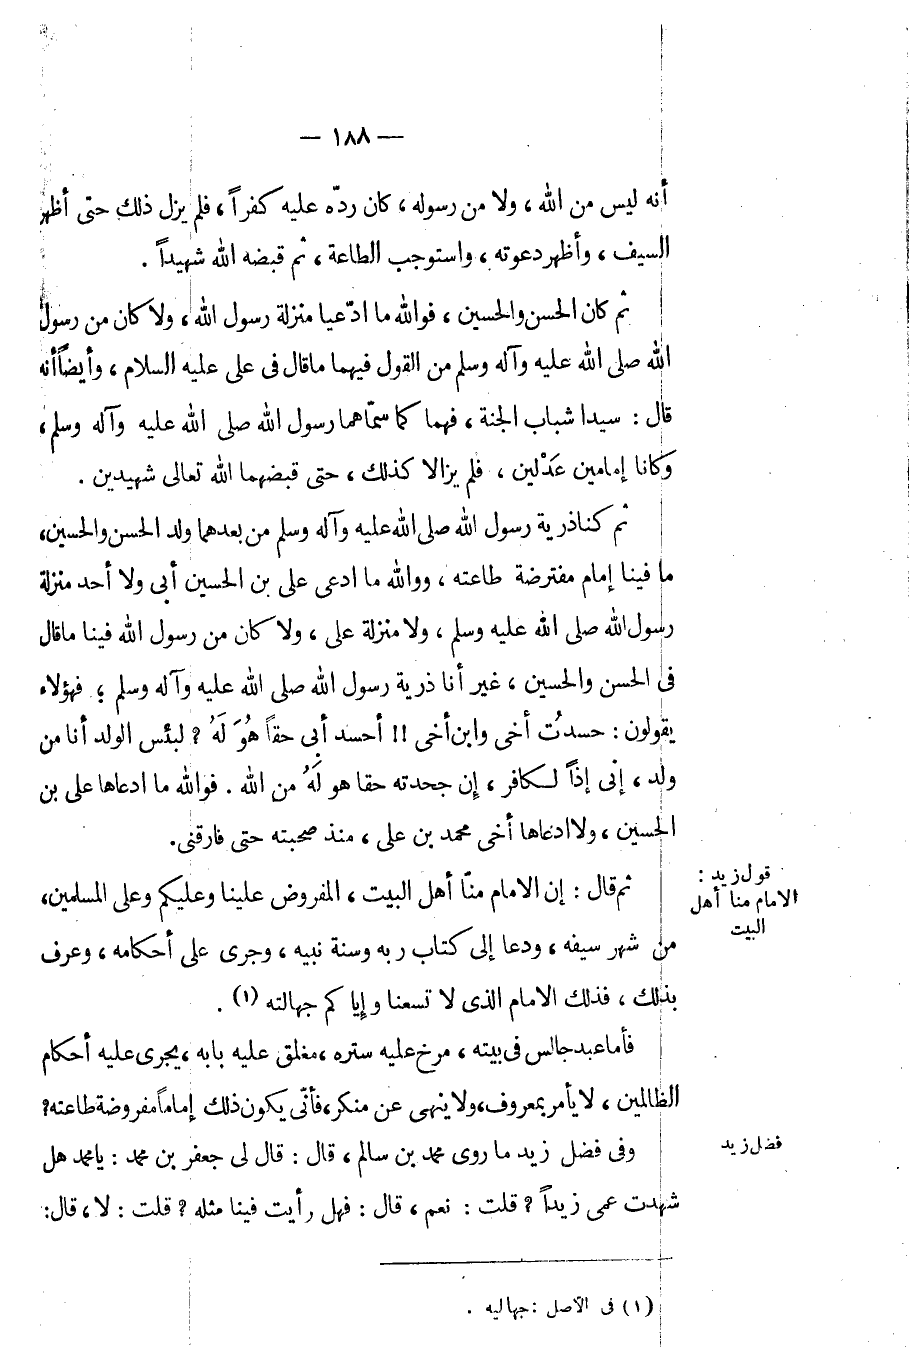 — ١٨٨ —
أنه ليس من الله ، ولا من رسوله ، كان ردّه عليه كفراً ، فلم يزل ذلك حتى أظهر
السيف ، وأظهر دعوته ، واستوجب الطاعة ، ثم قبضه الله شهيداً .
ثم كان الحسن والحسين ، فوالله ما ادّعيا منزلة رسول الله ، ولا كان من رسول
الله صلى الله عليه وآله وسلم من القول فيهما ماقال فى على عليه السلام ، وأيضاً أنه
قال : سيدا شباب الجنة ، فهما كما سمّاهما رسول الله صلى الله عليه وآله وسلم ،
وكانا إمامين عَدْلين ، فلم يزالا كذلك ، حتى قبضهما الله تعالى شهيدين .
ثم كنا ذرية رسول الله صلى الله عليه وآله وسلم من بعدهما ولد الحسن والحسين،
ما فينا إمام مفترضة طاعته ، ووالله ما ادعى على بن الحسين أبى ولا أحد منزلة
رسول الله صلى الله عليه وسلم ، ولا منزلة على ، ولا كان من رسول الله فينا ماقال
فى الحسن والحسين ، غير أنا ذرية رسول الله صلى الله عليه وآله وسلم ؛ فهؤلاء
يقولون : حسدتُ أخى وابن أخى !! أحسد أبى حقاً هُوَ لَهُ ؟ لبئس الولد أنا من
ولد ، إنّى إذاً لـكافر ، إن جحدته حقا هو لَهُ من الله . فوالله ما ادعاها على بن
الحسين ، ولا ادعاها أخى محمد بن على ، منذ صحبته حتى فارقنى.
ثم قال : إن الامام منّا أهل البيت ، المفروض علينا وعليكم وعلى المسلمين،
من شهر سيفه ، ودعا إلى كتاب ربه وسنة نبيه ، وجرى على أحكامه ، وعرف
بذلك ، فذلك الامام الذى لا تسعنا وإياكم جهالته (١) .
فأما عبد جالس فى بيته ، مرخ عليه ستره ، مغلق عليه بابه ، يجرى عليه أحكام
الظالمين ، لا يأمر بمعروف، ولا ينهى عن منكر، فأنّى يكون ذلك إماماً مفروضة طاعته؟
وفى فضل زيد ما روى محمد بن سالم ، قال : قال لى جعفر بن محمد : يا محمد هل
شهدت عمى زيداً ؟ قلت : نعم ، قال : فهل رأيت فينا مثله ؟ قلت : لا ، قال:
قول زيد :
الامام منا أهل
البيت
فضل زيد
(١) فى الآصل : جهاليه .